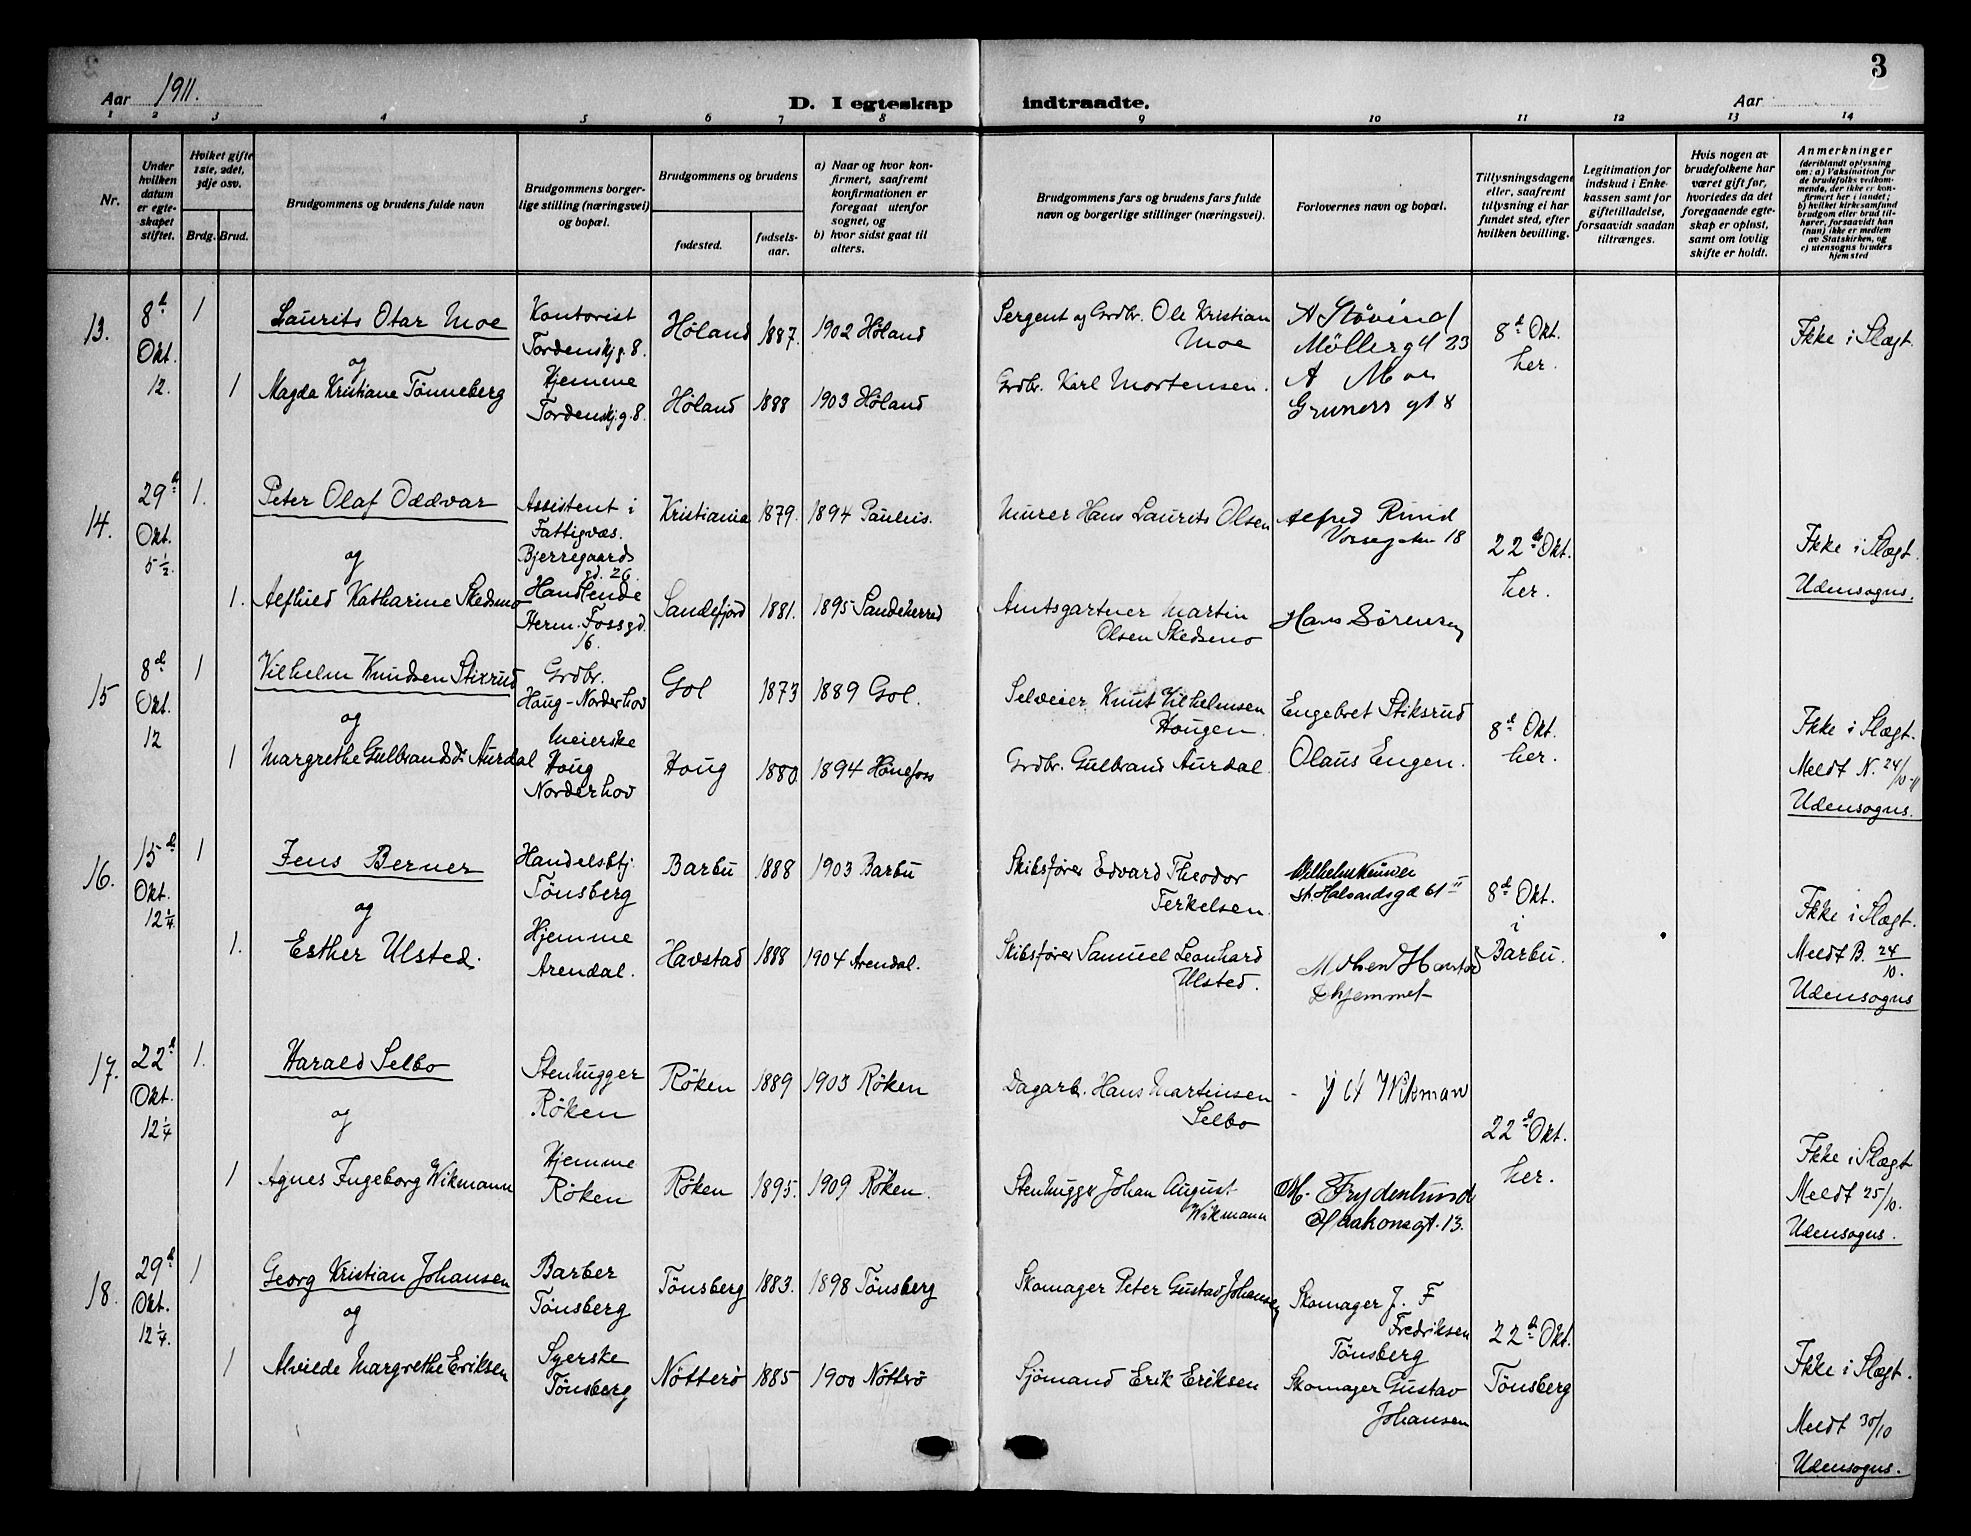 Aar 1911.
D. I egteskap indtraadte.
Aar
3
1 2 3 4 5 6 7 8 9 10 11 12 13 14
Nr.
Under hvilken datum er egteskapet stiftet.
Hvilket gifte 1ste, 2det, 3dje osv.
Brdg. Brud.
Brudgommens og brudens fulde navn
Brudgommens borgerlige stilling (næringsvei) og bopæl.
Brudgommens og brudens
fødested.
fødselsaar.
a) Naar og hvor konfirmert, saafremt konfirmationen er foregaat utenfor sognet, og
b) hvor sidst gaat til alters.
Brudgommens fars og brudens fars fulde navn og borgerlige stillinger (næringsvei).
Forlovernes navn og bopæl.
Tillysningsdagene eller, saafremt tillysning ei har fundet sted, efter hvilken bevilling.
Legitimation for indskud i Enkekassen samt for giftetilladelse, forsaavidt saadan tiltrænges.
Hvis nogen av brudefolkene har været gift før, hvorledes da det foregaaende egteskap er opløst, samt om lovlig skifte er holdt.
Anmerkninger
(deriblandt oplysning om: a) Vaksination for de brudefolks vedkommende, der ikke er konfirmert her i landet; b) hvilket kirkesamfund brudgom eller brud tilhører, forsaavidt han (hun) ikke er medlem av Statskirken, og c) utensogns bruders hjemsted
13. 8d Okt. 12. 1
Laurits Otar Moe
Kontorist Tordenskj.g. 8.
Høland 1887. 1902 Høland
Sergent og Grdbr. Ole Kristian Moe
A Støvind
Møllergt 23
8d Okt. her.
Ikke i Slægt.
og
1 Magda Kristiane Tønneberg
Hjemme Tordenskj.g. 8.
Høland 1888 1903 Høland
Grdbr. Karl Mortensen.
A Moe
Gruners gt 8
14. 29d Okt. 5 1/2. 1.
Peter Olaf Oddvar
Assistent i Fattigvæs. Bjerregaards gd. 26.
Kristiania 1879. 1894 Paulus.
Murer Hans Laurits Olsen
Alfred Rund
Vossegaten 18
22d Okt. her.
Ikke i Slægt.
Udensogns.
og
1. Alfhied Katharine Skedsmo
Handlende Herm. Fossgd. 16.
Sandefjord 1881. 1895 Sandeherred
Amtsgartner Martin Olsen Skedsmo
Hans Sørensen
15 8d Okt. 12 1
Vilhelm Knudsen Stixrud
Grdbr. Haug - Norderhov
Gol 1873 1889 Gol.
Selveier Knut Vilhelmsen Hougen.
Engebret Stiksrud
8d Okt. her.
Ikke i Slægt.
Meldt N. 24/10-11
Udensogns.
og
1 Margrethe Gulbrandsd. Aurdal
Meierske Houg Norderhov
Houg 1880 1894 Hønefoss
Grdbr. Gulbrand Aurdal.
Olaus Engen.
16. 15d Okt. 12 1/4 1
Jens Berner
Handelsbtj. Tønsberg
Barbu 1888 1903 Barbu
Skibsfører Edvard Theodor Terkelsen.
St. Halvardsgd 61 II
8d Okt. i Barbu.
Ikke i Slægt.
Meldt B. 24/10.
Udensogns
og
1. Esther Ulsted.
Hjemme Arendal.
Havstad 1888 1904 Arendal.
Skibsfører Samuel Leonhard Ulsted.
17. 22d Okt. 12 1/4 1.
Harald Selbo
Stenhugger Røken
Røken 1889 1903 Røken
Dagarb. Hans Martinsen Selbo
Wikman
22d Okt. her.
Ikke i Slægt
Meldt 25/10.
Udensogns.
og
1 Agnes Ingeborg Wikmann
Hjemme Røken
Røken 1895. 1909 Røken.
Stenhugger Johan August Wikmann
M. Frydenlund
Haakonsgt. 13.
18. 29d Okt. 12 1/4. 1
Georg Kristian Johansen
Barber Tønsberg
Tønsberg 1883. 1898 Tønsberg
Skomager Peter Gustav Johansen
Skomager J. F Fredriksen Tønsberg
22d Okt. Tønsberg
Ikke i Slægt.
Meldt 30/10
Udensogns.
og
1 Alvilde Margrethe Eriksen
Syerske Tønsberg
Nötterö 1885 1900 Nötterö
Sjömand Erik Eriksen
Skomager Gustav Johansen